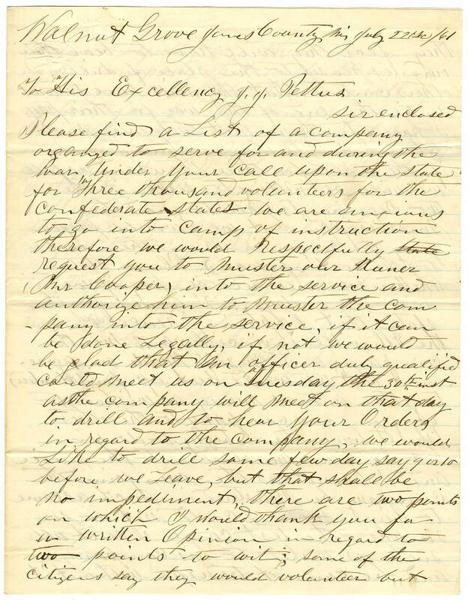 Walnut Grove Jones County, Mi July 22nd /61
To His Excellency J. J. Pettus
sir enclosed
Please find a List of a company
organzed to serve for and during the
war, under Your Call upon the state
for Three thousand volunteers for the
Confederate states we are anxious
to go into Camp of instruction
therefore we would respectfully state
request you to muster our
(Mr Cooper) into the service and
authorize him to muster the com
-pany into the service, if it can
be done Legally, if not we would
be glad that an officer duly qualified
could meet us on Tuesday the 30th inst
as the company will meet on that day
to drill and to hear Your Orders
in regard to the Company, we would
Like to drill some few day say 9 or 10
before we Leave, but that shall be
no impediment, there are two points
on which I would thank you for
a written Opinion in regard to
two points to wit; some of the
citizens say they would volunteer but